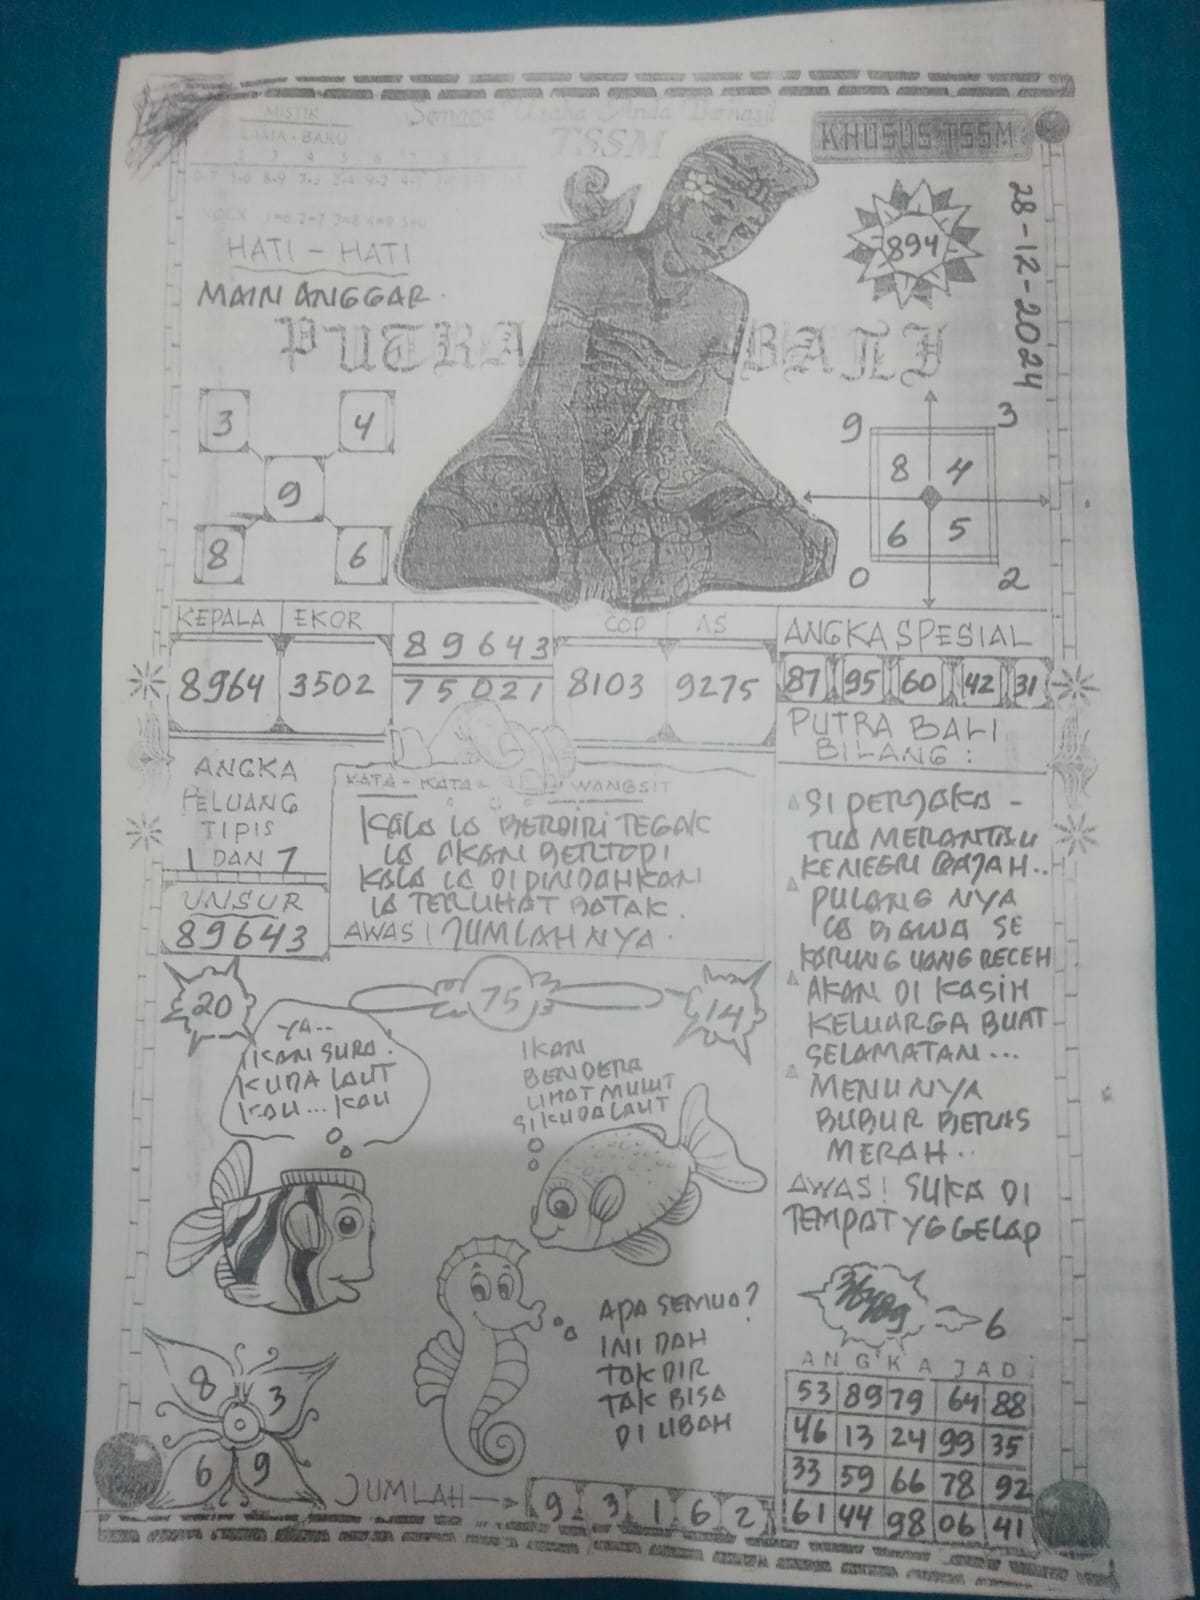 MISTIK
LAMA - BARU
Semoga Usaha Anda Berhasil
TSSM
KHUSUS TSSM
28-12-2024
894
INDEX 1=6 2=7 3=8 4=9 5=0
HATI - HATI
MAIN ANGGAR.
PUTRA BALI
3 4
9
8 6
9 3
8 4
6 5
0 2
KEPALA EKOR
8964 3502
89643
75021
COP AS
8103 9275
ANGKA SPESIAL
87 95 60 42 31
PUTRA BALI
BILANG :
ANGKA
PELUANG
TIPIS
1 DAN 7
UNSUR
89643
KATA - KATA WANGSIT
KALA IA BERDIRI TEGAK
IA AKAN BERTOPI
KALA IA DIPINDAHKAN
IA TERLIHAT BOTAK.
AWAS! JUMLAHNYA.
SI PERJAKA -
TUA MERANTAU
KENEGRI GAJAH..
PULANG NYA
IA BAWA SE
KARUNG UANG RECEH
AKAN DI KASIH
KELUARGA BUAT
SELAMATAN...
MENUNYA
BUBUR BERAS
MERAH..
AWAS! SUKA DI
TEMPAT YG GELAP
20
75
14
YA..
IKAN SURO.
KUDA LAUT
KAU... KAU
IKAN
BENDERA
LIHAT MULUT
SI KUDA LAUT
APA SEMUA?
INI DAH
TAKDIR
TAK BISA
DI UBAH
6
8 3
6 9
JUMLAH
9 3 1 6 2
ANGKA JADI
53 89 79 64 88
46 13 24 99 35
33 59 66 78 92
61 44 98 06 41